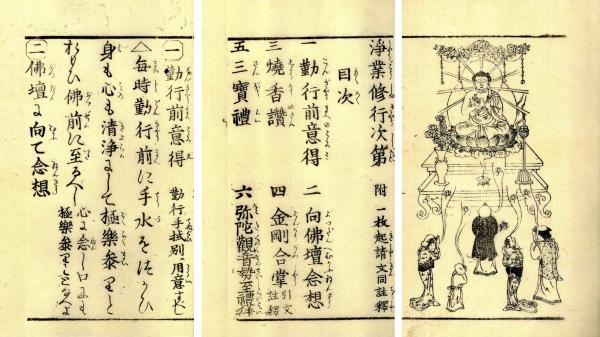 淨業修行次第 附 一枚起請文同註釋
目次
一 勤行前意得 二 向佛壇念想
三 燒香讚 四 金剛合掌 引文註釋
五 三寶禮 六 弥陀觀音勢至禮拜
一 勤行前意得 勤行手拭別用意すべし
△毎時勤行前に手水をつかひ
身も心も清淨にして極樂參りと
おもひ佛前に至るべし 心に念し口にも極樂參りと
二 佛壇に向て念想